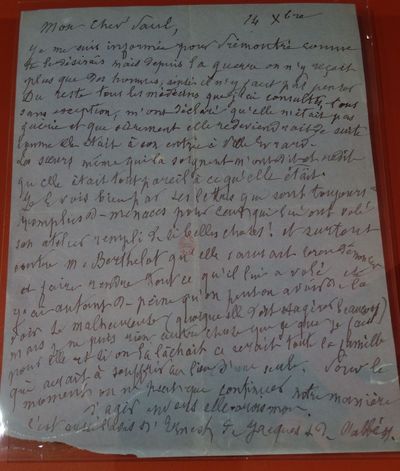 14 Xbre
Mon Cher Paul,
Je me suis informée pour Prémontré comme
tu le désirais mais depuis la guerre on n'y reçoit
plus que des hommes, ainsi il n'y faut pas penser
Du reste tous les médecins que j'ai consultés, tous
sans exception, m'ont déclaré qu'elle n'était pas
guérie et que sûrement elle redeviendrait de suite
comme elle était à son entrée à Ville Evrard.
Les sœurs même qui la soignent m'ont dit et redit
qu'elle était tout pareil à ce qu'elle était.
Je le vois bien par ses lettres qui sont toujours
remplies de menaces pour ceux qui lui ont volé
son atelier rempli de si belles choses! et surtout
contre M. Berthelot qu'elle
et faire rendre tout ce qu'il lui a volé
J'ai autant de peine qu'on peut en avoir de la
voir si malheureuse (quoiqu'elle doit exagérer beaucoup)
mais je ne puis rien autre chose que ce que je fais
pour elle et si on la lâchait ce serait toute la famille
qui aurait à souffrir au lieu d'une seule. Pour le
moment on ne peut que continuer notre manière
d'agir envers elle
c'est aussi l'avis d'Ernest, de Jacques et de